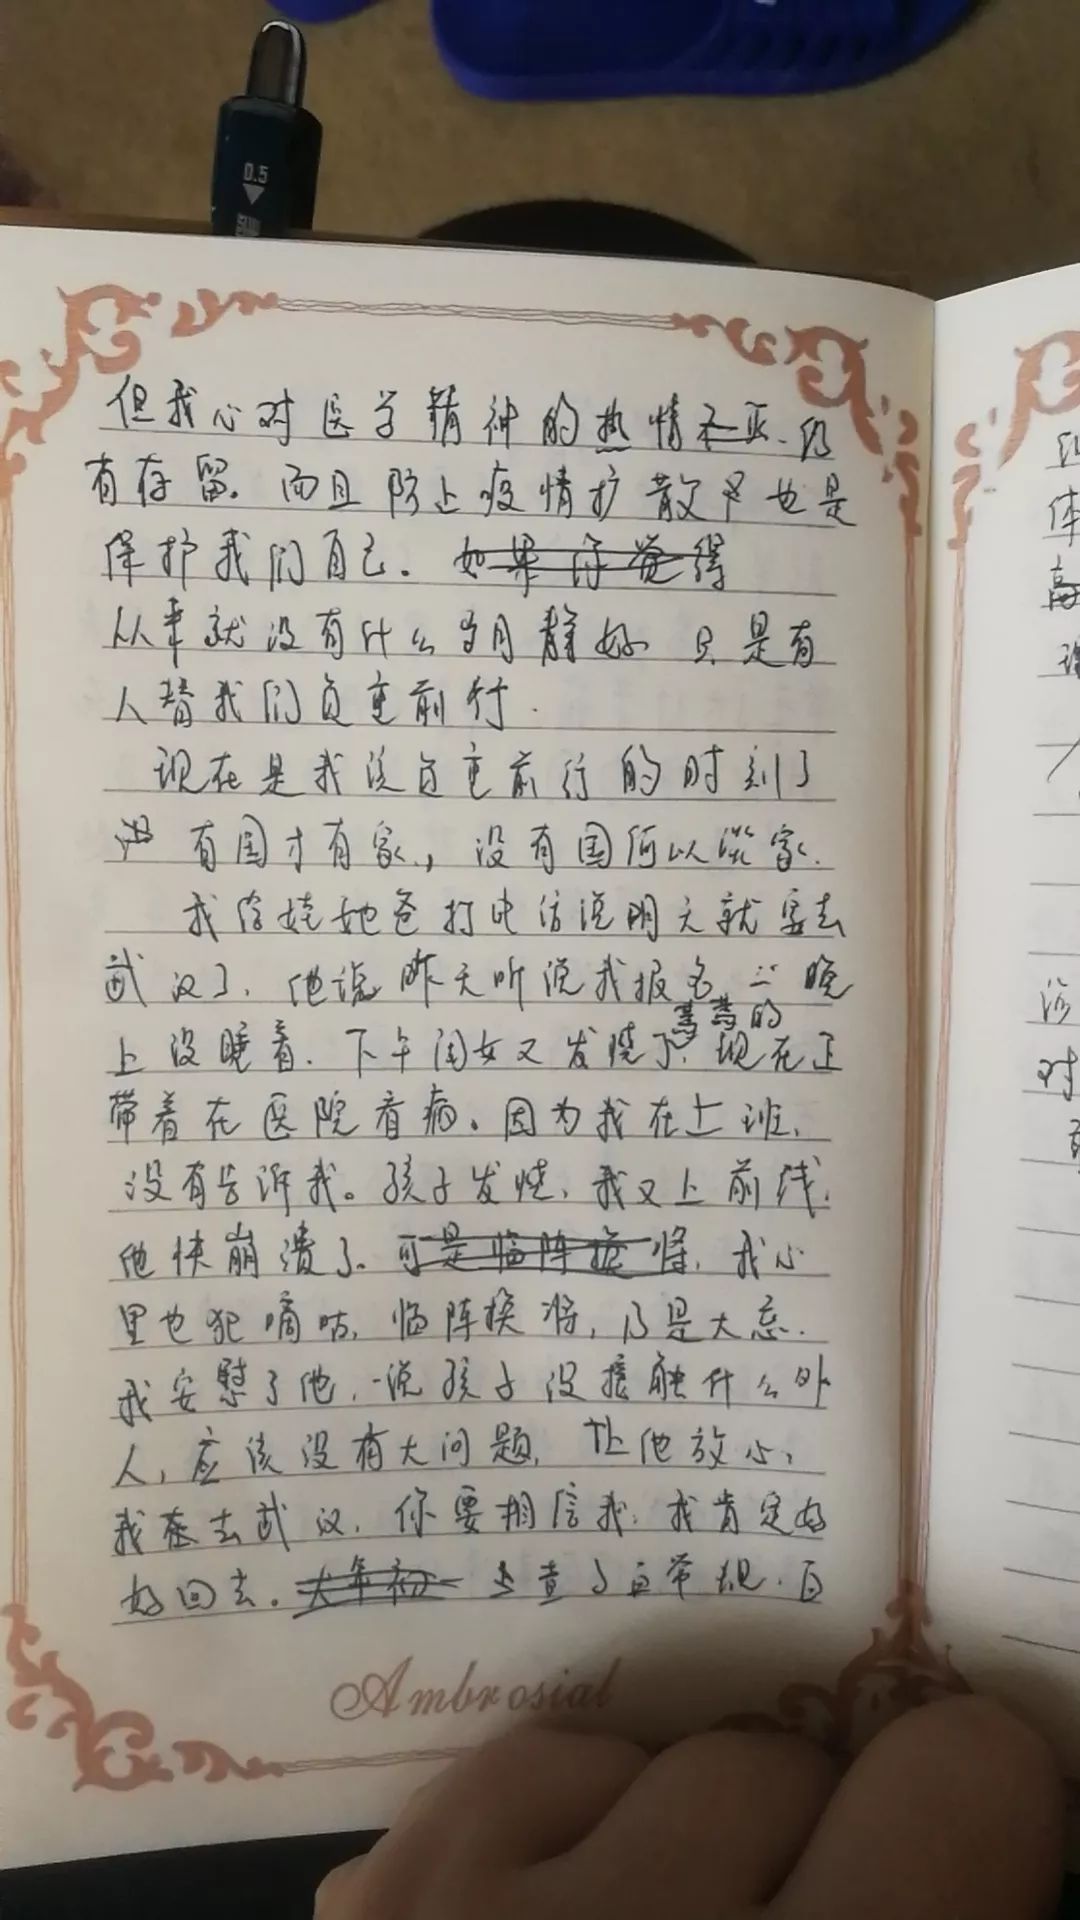 0.5
但我心对医学精神的热情不灭、仍
有存留。而且防止疫情扩散 也是
保护我们自己。如果你觉得
从来就没有什么岁月静好 只是有
人替我们负重前行.
现在是我该负重前行的时刻了
有国才有家,,没有国何以 家.
我给娃她爸打电话说明天就要去
武汉了、他说昨天听说我报名 晚
上没睡着. 下午闺女又发烧了. 现在正
蔫蔫的
带着在医院看病。因为我在上班、
没有告诉我。孩子发烧、我又上前线,
他快崩溃了。可是临阵换将, 我心
里也犯嘀咕, 临阵换将, 乃是大忌.
我安慰了他, 说孩子没接触什么外
人, 应该没有大问题, 让他放心,
我 去武汉, 你要相信我: 我肯定好
好回去。大年初 查了血常规、
Ambrosial
体
对